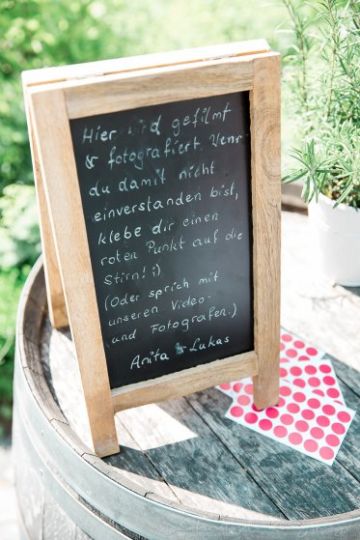 Hier wird gefilmt
& fotografiert. Wenn
du damit nicht
einverstanden bist,
klebe dir einen
roten Punkt auf die
Stirn! ;)
(Oder sprich mit
unseren Video-
und Fotografen.)
Anita & Lukas